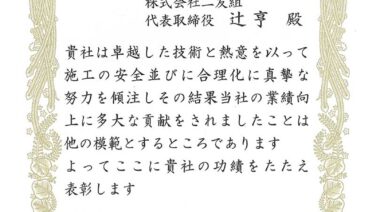 株式会社二友組
代表取締役 辻亨 殿
貴社は卓越した技術と熱意を以って
施工の安全並びに合理化に真摯な
努力を傾注しその結果当社の業績向
上に多大な貢献をされましたことは
他の模範とするところであります
よってここに貴社の功績をたたえ
表彰します